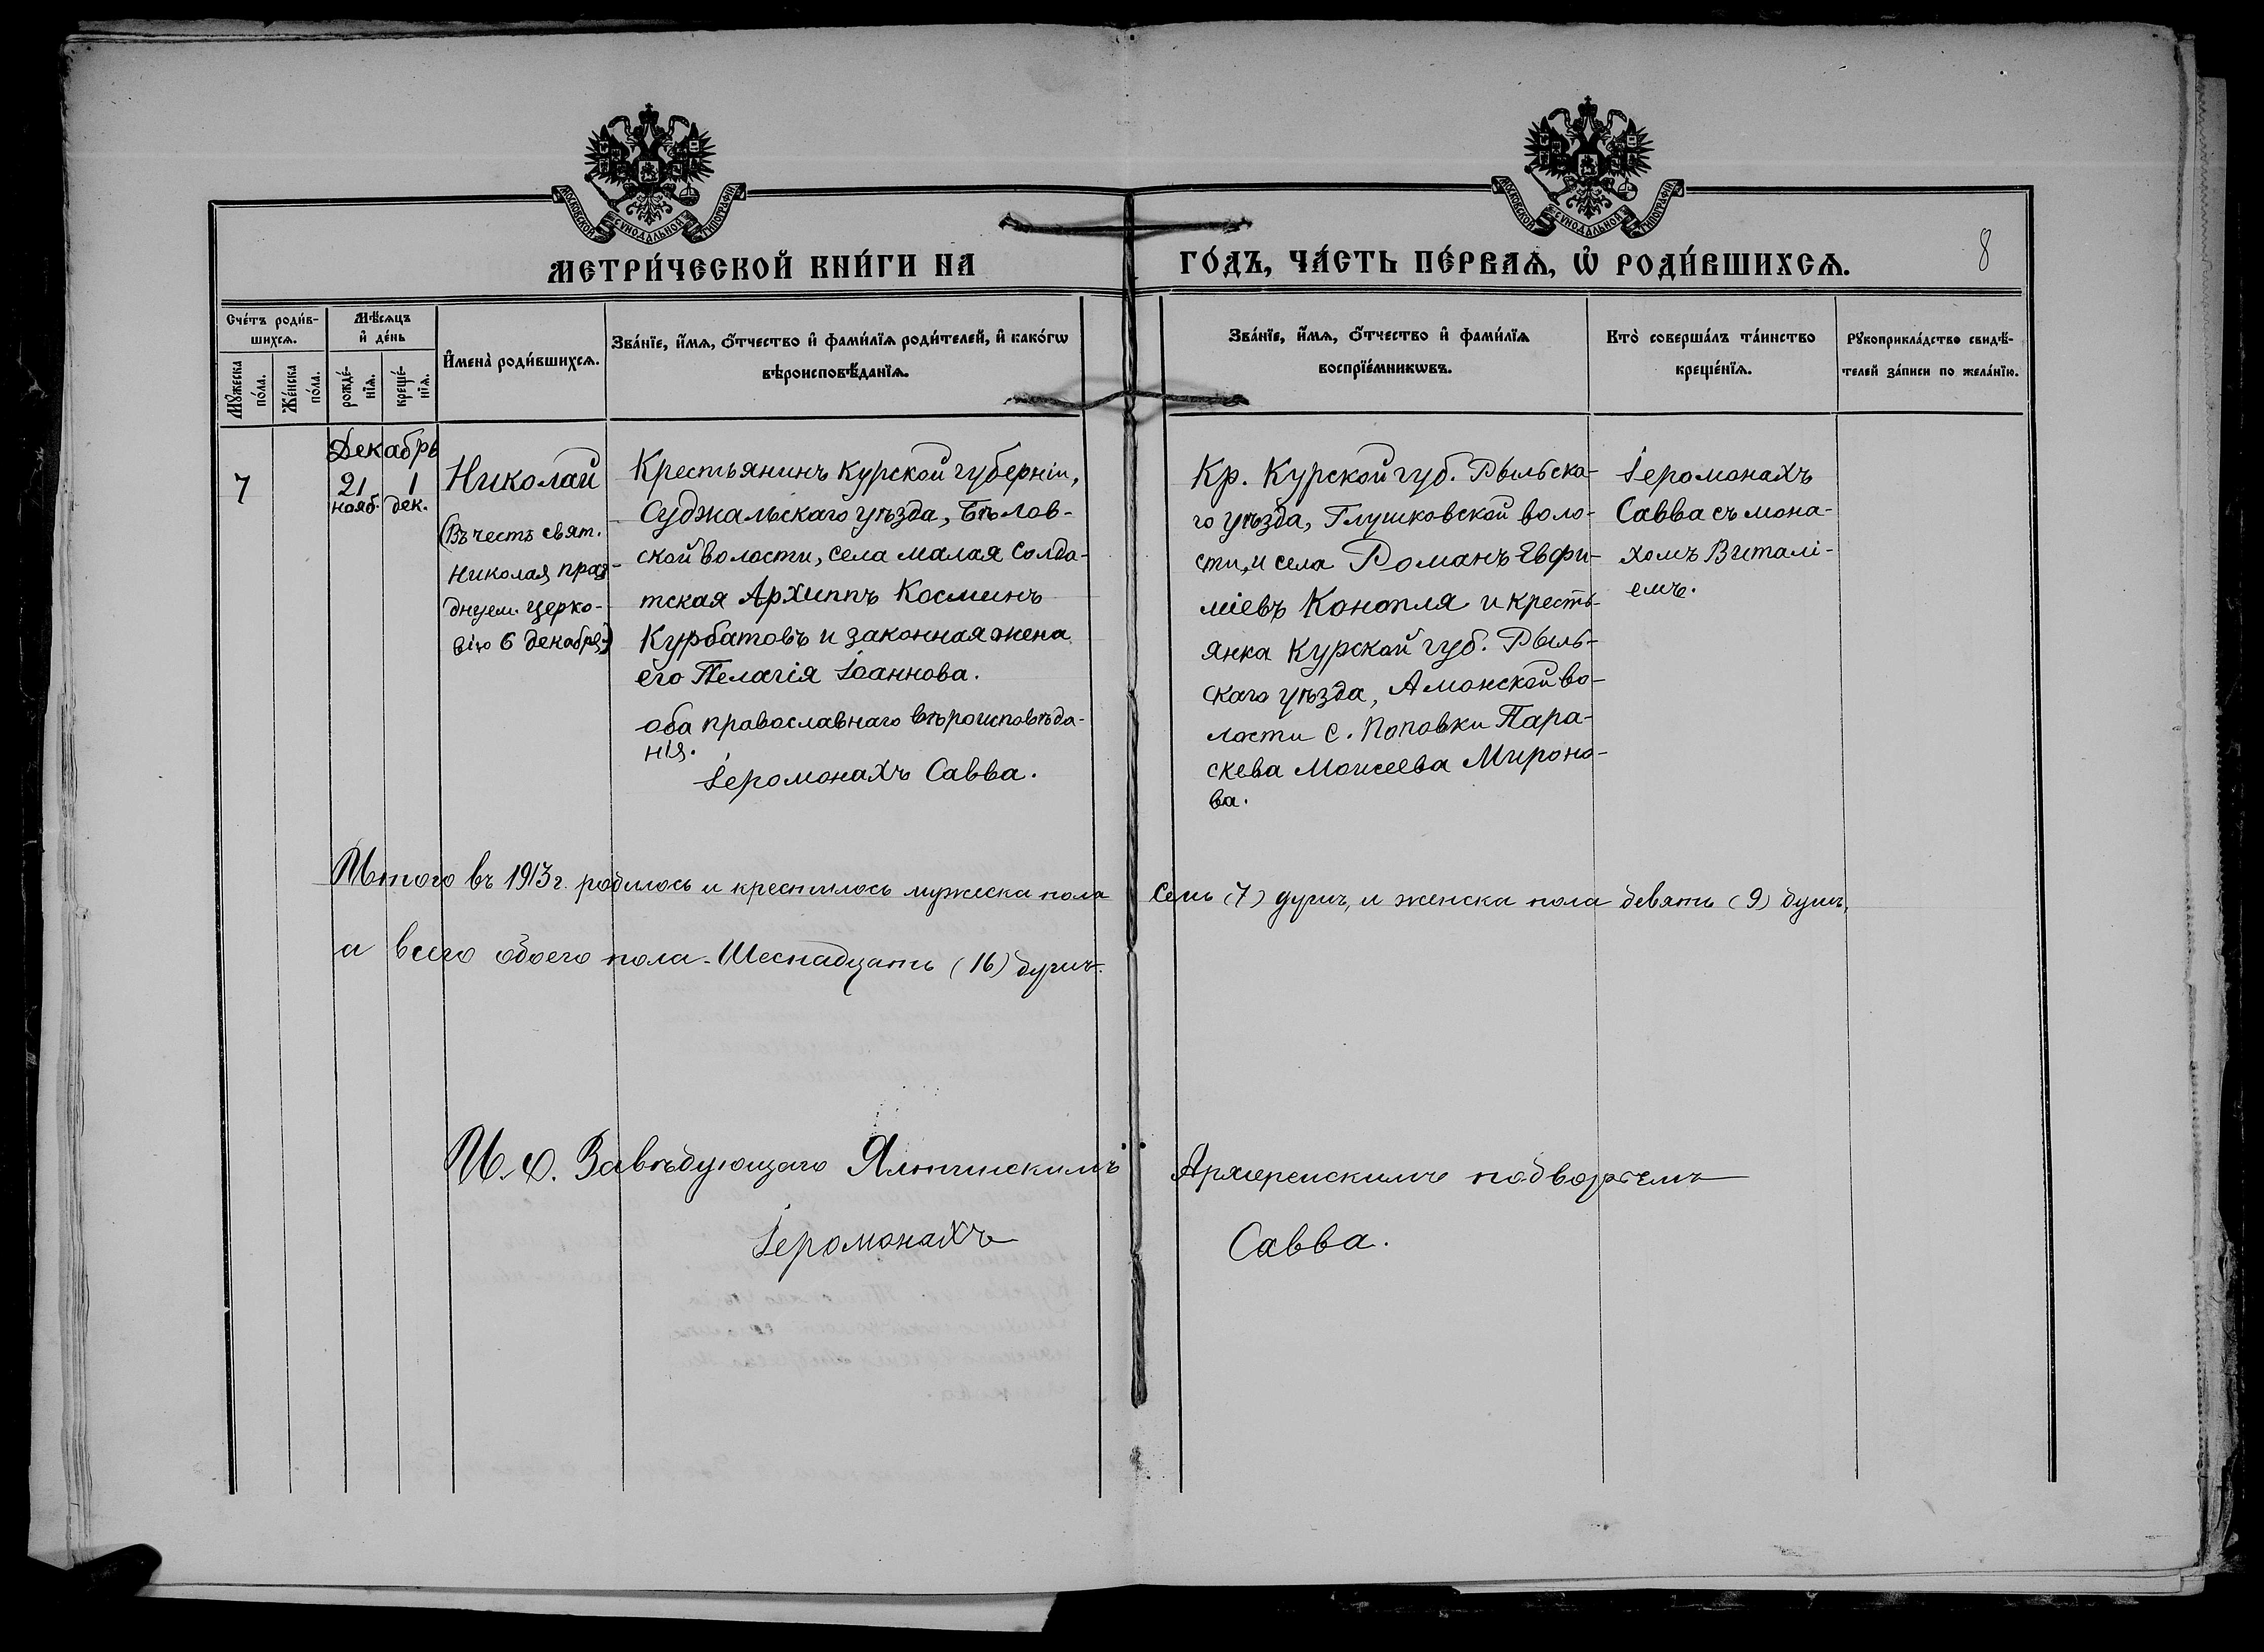 МОСКОВСКОЙ СѴНОДАЛЬНОЙ ТИПОГРАФІИ
МОСКОВСКОЙ СѴНОДАЛЬНОЙ ТИПОГРАФІИ
МЕТРИ́ЧЕСКОЙ КНИ́ГИ НА
ГО́ДЪ, ЧА́СТЬ ПЕ́РВАѦ, Ѡ҆ РОДИ́ВШИХСѦ.
8
Сче́тъ роди́в-
шихсѧ.
Мꙋ́жеска
по́ла.
Же́нска
по́ла.
Мѣ́сѧцъ
и҆ де́нь
рожде́-
нїѧ.
креще́-
нїѧ.
И҆мена̀ роди́вшихсѧ.
Зва́нїе, и҆́мѧ, ѻ҆́тчество и҆ фами́лїѧ роди́телей, и҆ како́гѡ
вѣроисповѣ́данїѧ.
Зва́нїе, и҆́мѧ, ѻ҆́тчество и҆ фами́лїѧ
воспрїе́мникѡвъ.
Кто̀ соверша́лъ та́инство
креще́нїѧ.
Рꙋкоприкла́дство свидѣ́-
телей за́писи по жела́нїю.
7
Декабрь
21 1
нояб. дек.
Николай
(Въ честь свят.
Николая праз-
днуем. Церко-
вію 6 декабря)
Крестьянинъ Курской губерніи,
Суджальскаго уѣзда, Бѣлов-
ской волости, села малая Солда-
тская Архиппъ Косминъ
Курбатовъ и законная жена
его Пелагія Іоаннова.
оба православнаго вѣроисповѣда-
нія.
Іеромонахъ Савва.
Кр. Курской губ. Рыльска-
го уѣзда, Глушковской воло-
сти, и села Романъ Евфи-
міевъ Конопля и кресть-
янка Курской губ. Рыль-
скаго уѣзда, Амонской во-
лости с. Поповки Пара-
скева Моисеева Мироно-
ва.
Іеромонахъ
Савва съ мона-
хомъ Виталі-
емъ.
Итого въ 1913 г. родилось и крестилось мужеска пола семь (7) душъ, и женска пола девять (9) душъ,
а всего обоего пола - Шеснадцать (16) душъ.
И. д. Завѣдующаго Ялтинскимъ Архіерейскимъ подворьемъ
Іеромонахъ Савва.